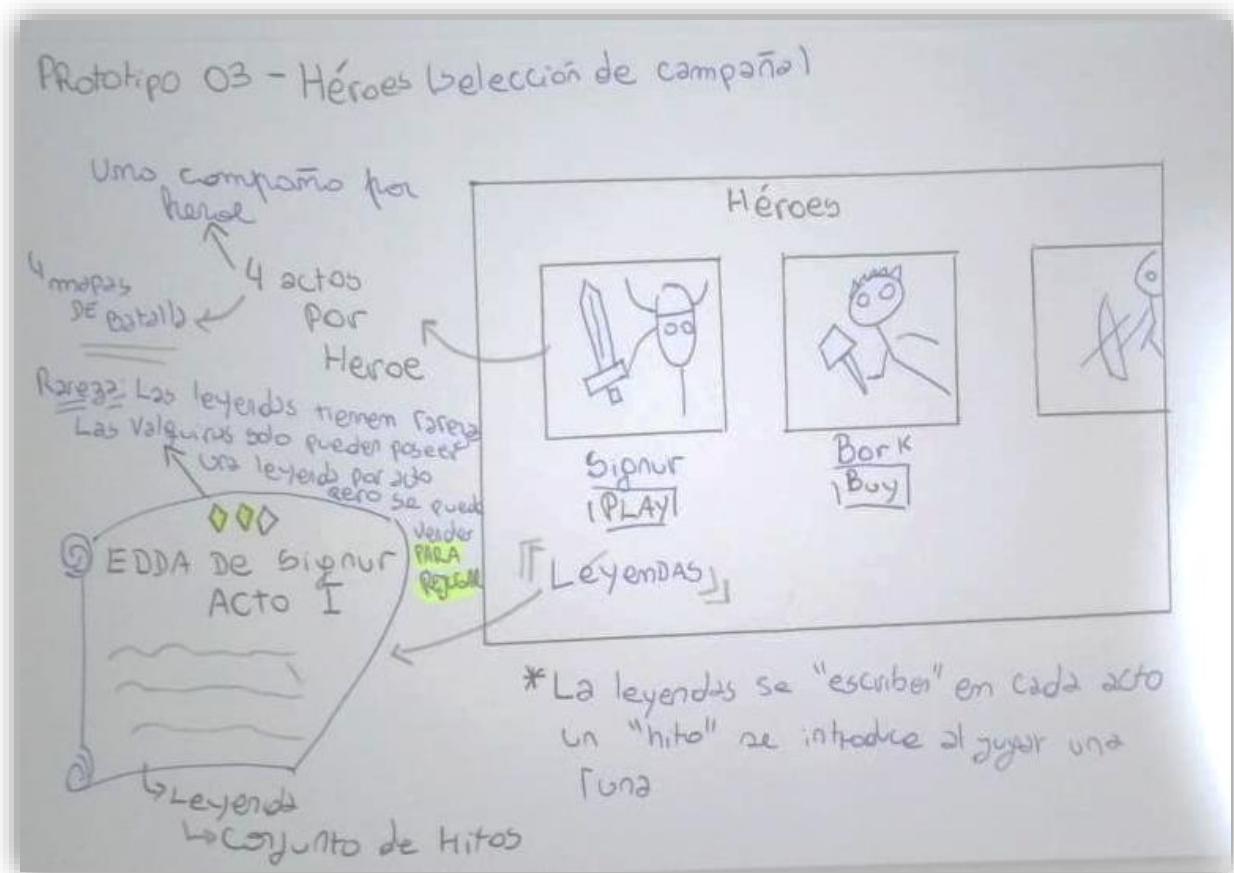 PRototipo 03 - Héroes (selección de campaña)
Una campaña por
heroe
4 actos
por
Heroe
4 mapas
DE Batalla
Rareza: Las leyendas tienen rareza
Las Valquirias solo pueden poseer
una leyenda por acto
pero se puede
vender
PARA
EDDA De Signur
ACTO I
Leyenda
Conjunto de Hitos
Héroes
Signur
PLAY
Bork
Buy
LeyenDAS
*La leyendas se "escriben" en cada acto
un "hito" se introduce al jugar una
runa